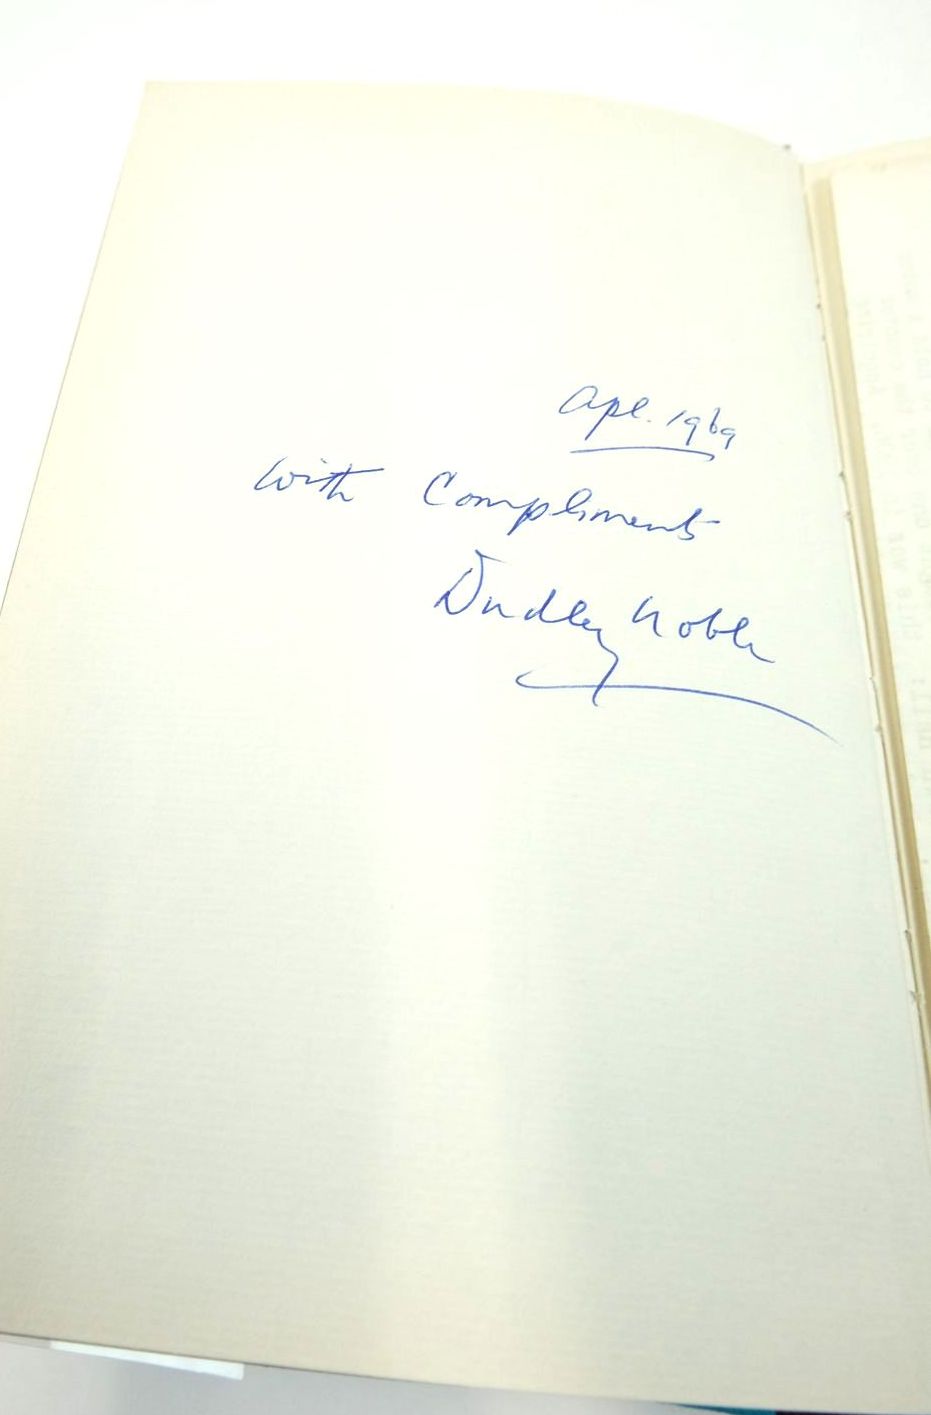 Apl. 1969
With Compliments
Dudley Noble